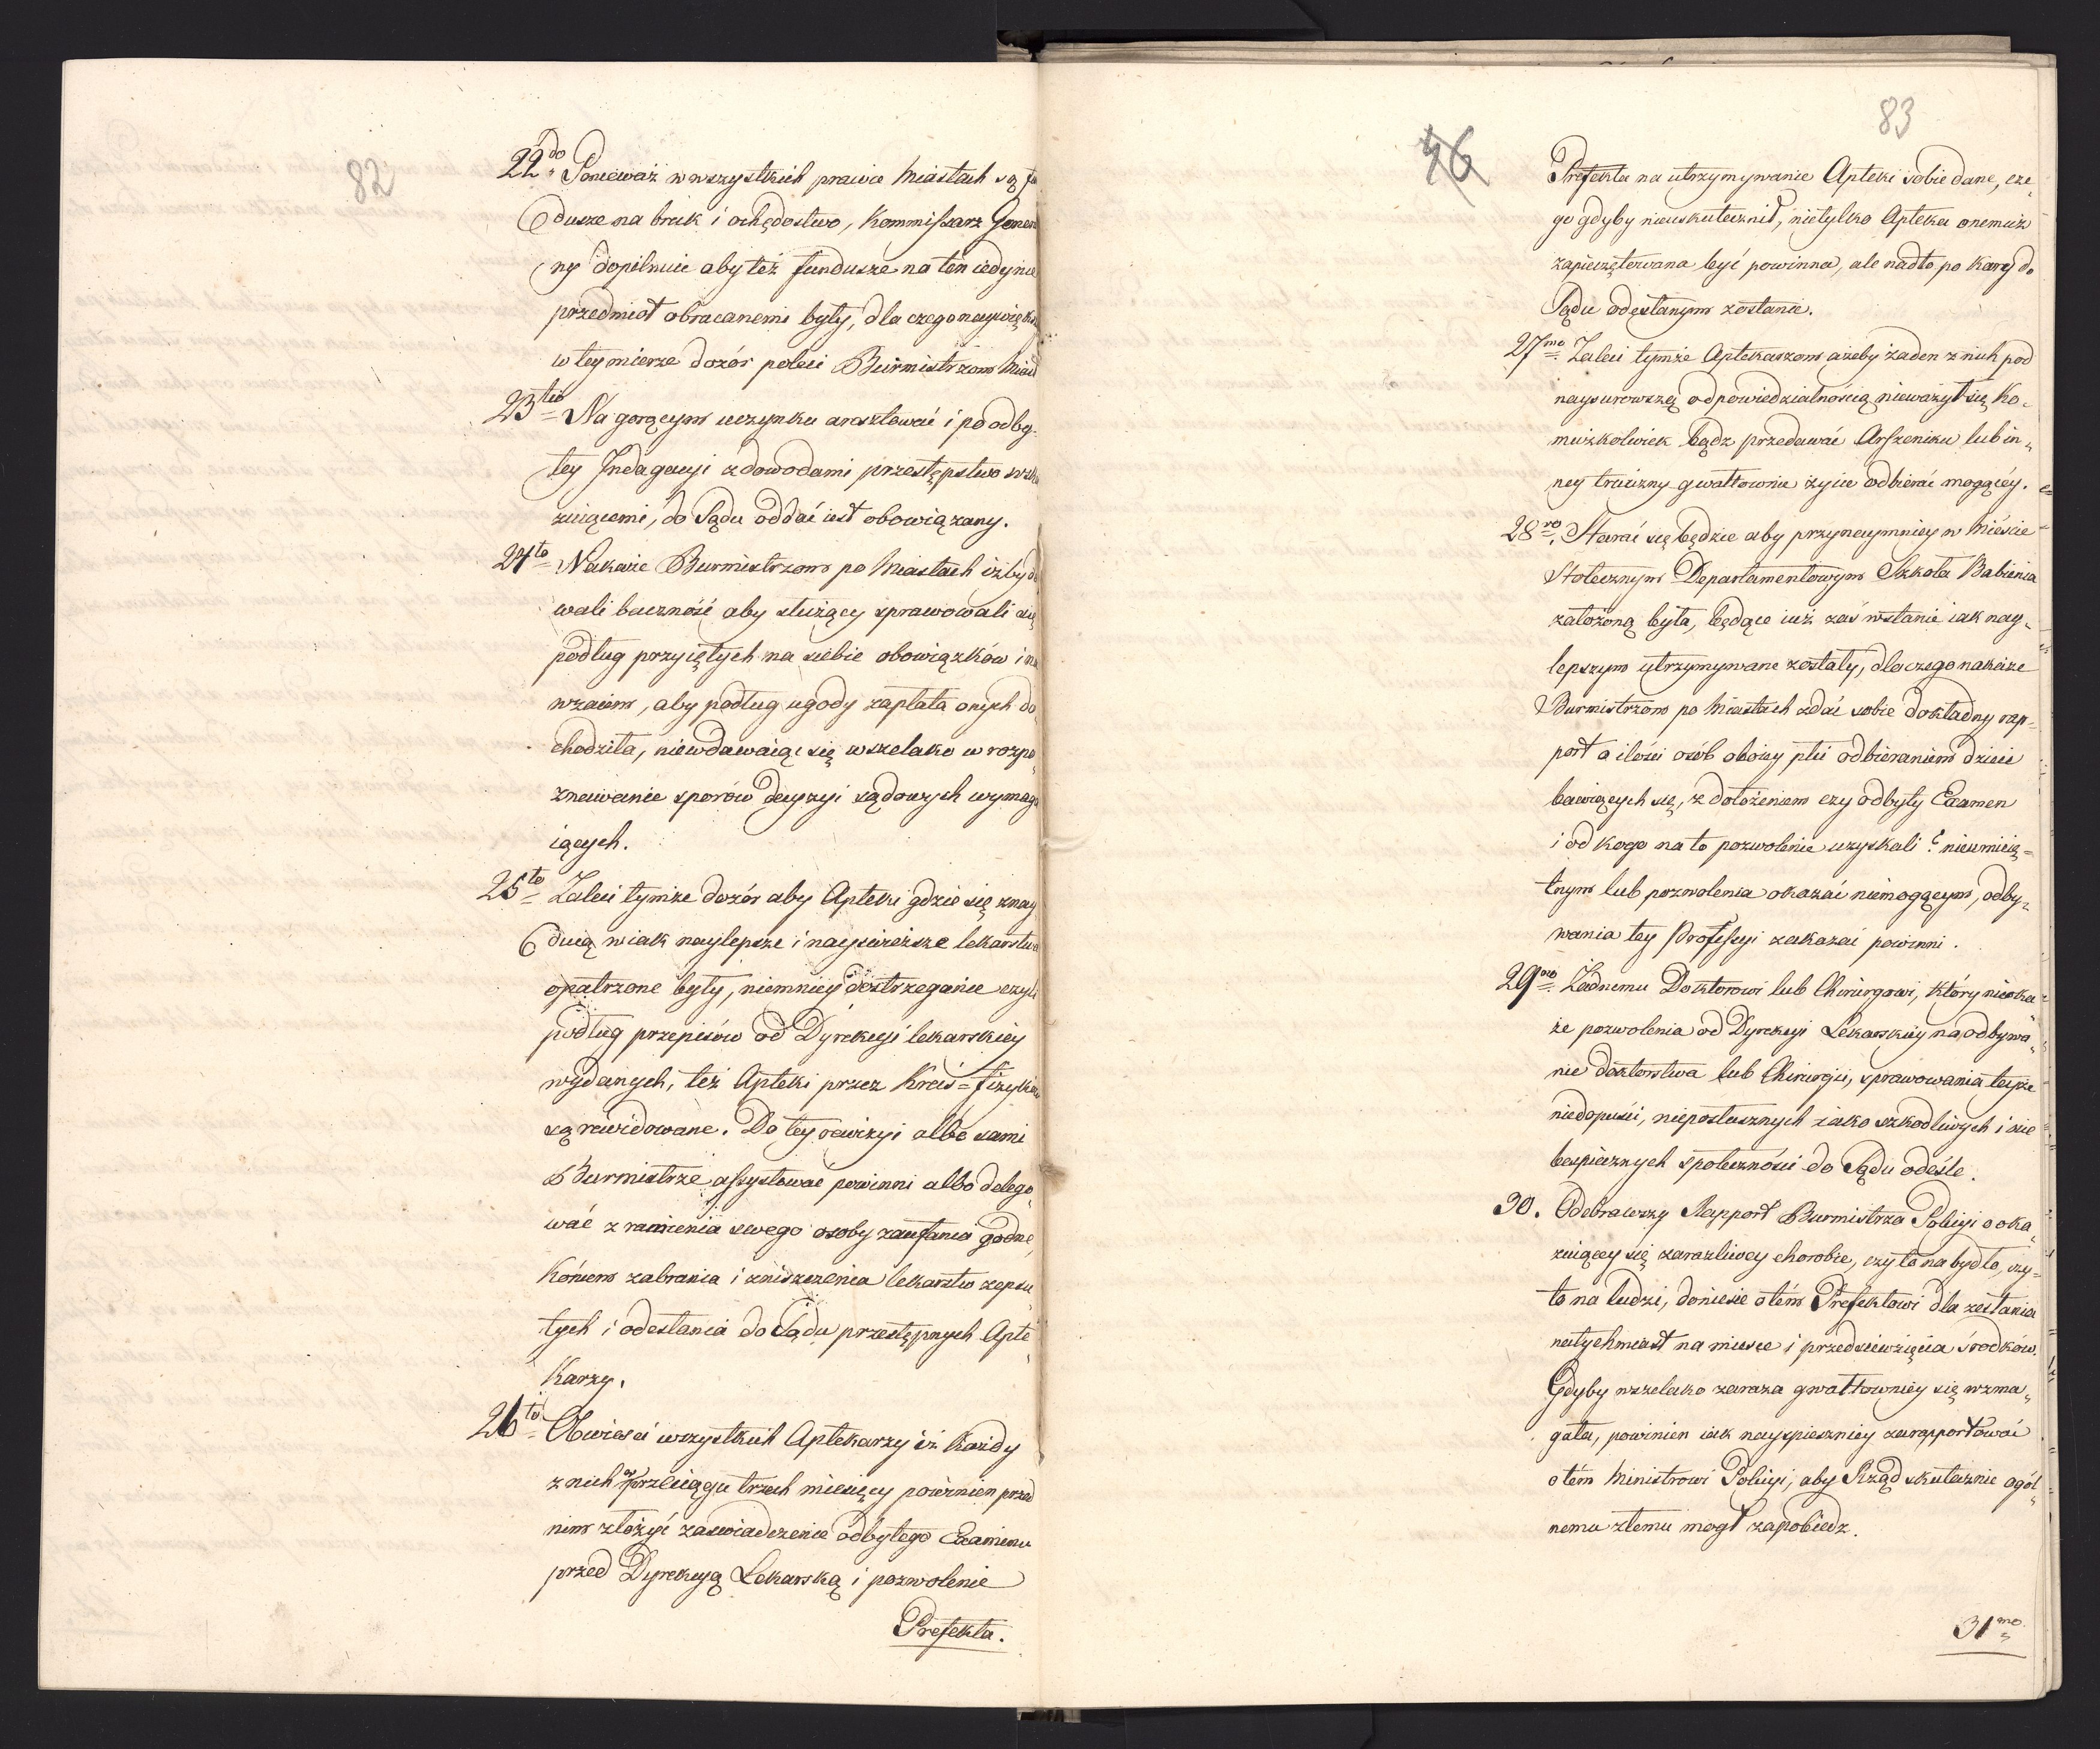 82
22do Ponieważ w wszystkich prawie Miastach są fu
dusze na bruk i ochędostwo, Kommissarz Gener
ny dopilnuie aby też fundusze na ten iedynie
przedmiot obracanemi były, dla czego naywięks
w tey mierze dozór poleci Burmistrzom Miast
23tio Na gorącym uczynku aresztować i po odby
tey Indagacyi z dowodami przestępstwo wska
zuiącemi, do Sądu oddać iest obowiązany.
24to Nakaże Burmistrzom po Miastach iżby da
wali baczność aby służący sprawowali się
podług przyiętych na siebie obowiązków i na
wzaiem, aby podług ugody zapłata onych do
chodziła, niewdawaiąc się wszelako w rozpo
znawanie sporów decyzyi sądowych wymaga
iących.
25to Zaleci tymże dozór aby Apteki gdzie się znay
duią w iak naylepsze i nayświeższe lekarstwa
opatrzone były, niemniey dostrzeganie czyli
podług przepisów od Dyrekcyi lekarskiey
wydanych, też Apteki przez Kreis=fizyków
są rewidowane. Do tey rewizyi albo sami
Burmistrze assystować powinni albo delego
wać z ramienia swego osoby zaufania godne,
Końcem zabrania i zniszczenia lekarstw zepsu
tych i odesłania do Sądu przestępnych Apte
karzy.
26to Obwieści wszystkich Aptekarzy iż Każdy
z nich w przeciągu trzech miesięcy powinien przed
nim złożyć zaświadczenie odbytego Examinu
przed Dyrekcyą Lekarską i pozwolenie
Prefekta.
83
46
Prefekta na utrzymywanie Apteki sobie dane, cze
go gdyby nieuskutecznił, nietylko Apteka onemuż
zapieczętowana być powinna, ale nadto po Karę do
Sądu odesłanym zostanie.
27mo Zaleci tymże Aptekarzom ażeby żaden z nich pod
naysurowszą odpowiedzialnością nieważył się Ko-
mużkolwiek bądz przedawać Arszeniku lub in-
ney trucizny gwałtownie życie odbierać mogącey.
28vo Starać się będzie aby przynaymniey w Mieście
Stołecznym Departamentowym Szkoła Babienia
założoną była, będące iuż zaś w stanie iak nay-
lepszym utrzymywane zostały, dla czego nakaże
Burmistrzom po Miastach zdać sobie dokładny rap-
port o ilości osób oboiey płci odbieraniem dzieci
bawiących się, z dołożeniem czy odbyły Examen
i od kogo na to pozwolenie uzyskali? nieumieię=
tnym lub pozwolenia okazać niemogącym, odby-
wania tey Professyi zakazać powinni.
29no Żadnemu Doktorowi lub Chirurgowi, który nieoka
że pozwolenia od Dyrekcyi Lekarskiey na odbywa
nie doktorstwa lub Chirurgii, sprawowania teyże
niedopuści, nieposłusznych iako szkodliwych i nie
bespiecznych społeczności do Sądu odeśle.
30. Odebrawszy Rapport Burmistrza Policyi o oka
zuiącey się zaraźliwey chorobie, czy to na bydło, czy=
to na ludzi, doniesie o tém Prefektowi dla zesłania
natychmiast na miesce i przedsiewzięcia środków.
Gdyby wszelako zaraza gwałtowniey się wzma-
gała, powinien iak nayspieszniey zarapportować
o tém Ministrowi Policyi, aby Rząd skutecznie ogól
nemu złemu mogł zapobiedz.
31mo